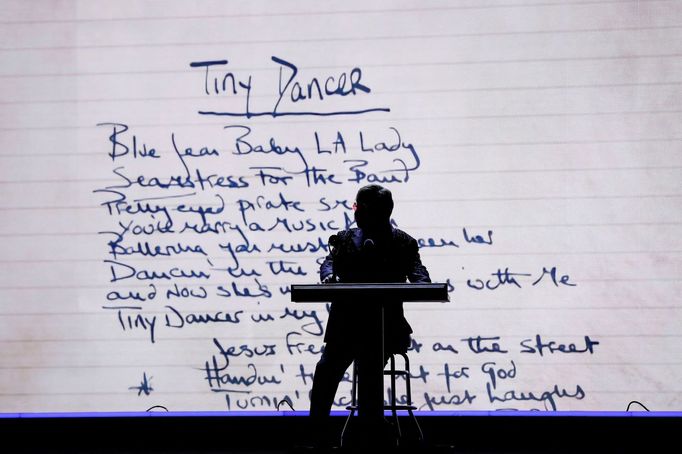 Tiny Dancer
Blue Jean Baby LA Lady
Seamstress For the Band
Pretty eyed pirate
you'll marry a Music
Ballerina you must been her
Dancin' in the
and Now she's with Me
Tiny Dancer in my
Jesus on the street
Handin' for God
Turnin' she just laughs